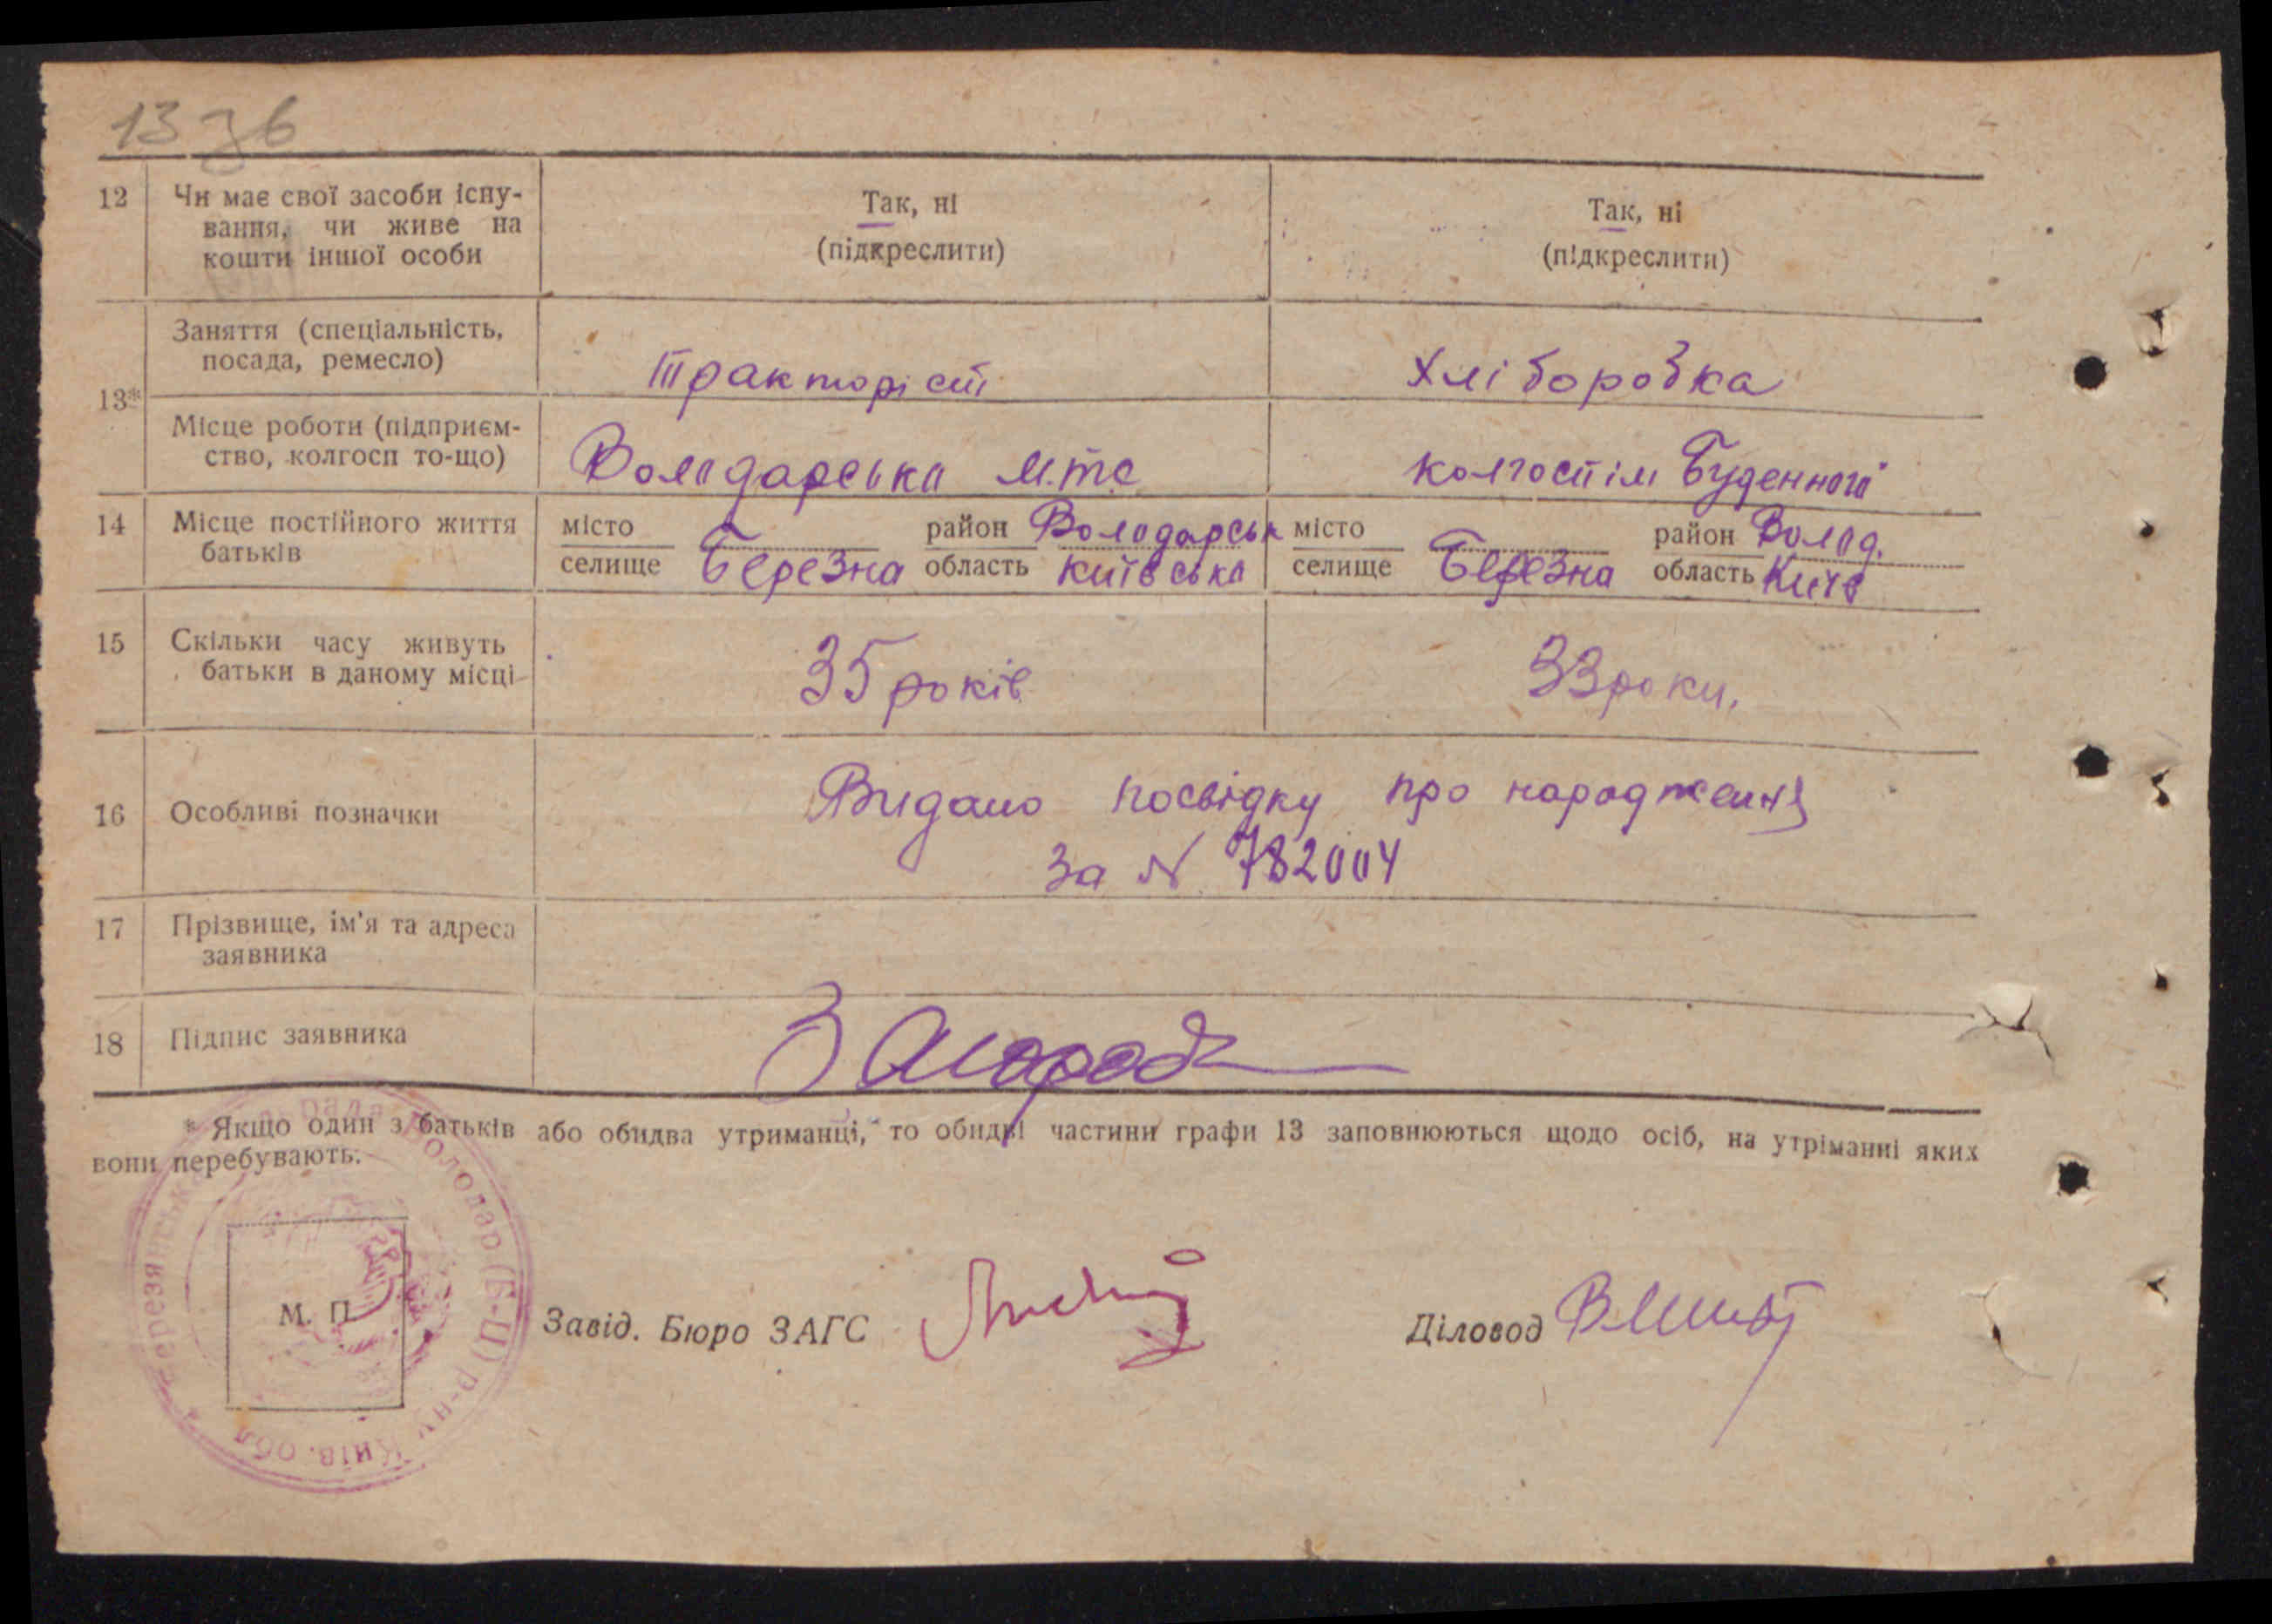 13 зв
12 Чи має свої засоби існу- Так, ні Так, ні
вання, чи живе на (підкреслити) (підкреслити)
кошти іншої особи
13* Заняття (спеціальність, посада, ремесло) Тракторіст Хліборобка
Місце роботи (підприєм-
ство, колгосп то-що) Володарська М.Т.С колгосп ім Буденного
14 Місце постійного життя місто район Володарськ місто район Волод.
батьків селище Березна область Київська селище Березна область Київ
15 Скільки часу живуть
батьки в даному місці 35 років 33 роки.
16 Особливі позначки Видано посвідку про народження
за N 782004
17 Прізвище, ім'я та адреса
заявника
18 Підпис заявника
* Якщо один з батьків або обидва утриманці, то обидві частини графи 13 заповнюються щодо осіб, на утріманні яких
вони перебувають.
Березянська рада Володар (Б-Ц) р-ну Київ. обл
М. П.
Завід. Бюро ЗАГС Діловод